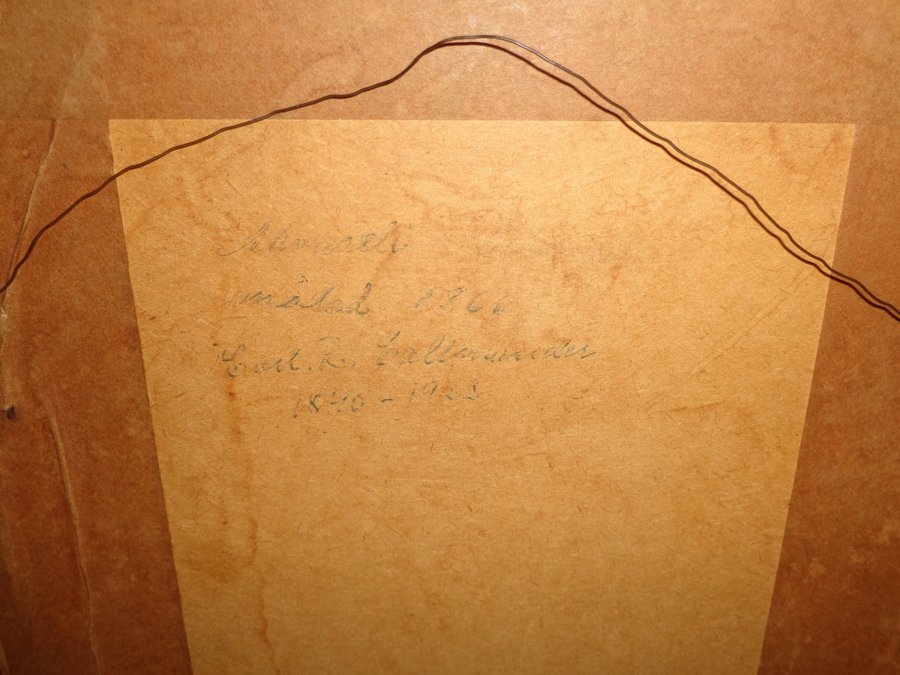 Akvarell
målad 1866
Carl. R. Callmander
1840 - 1922